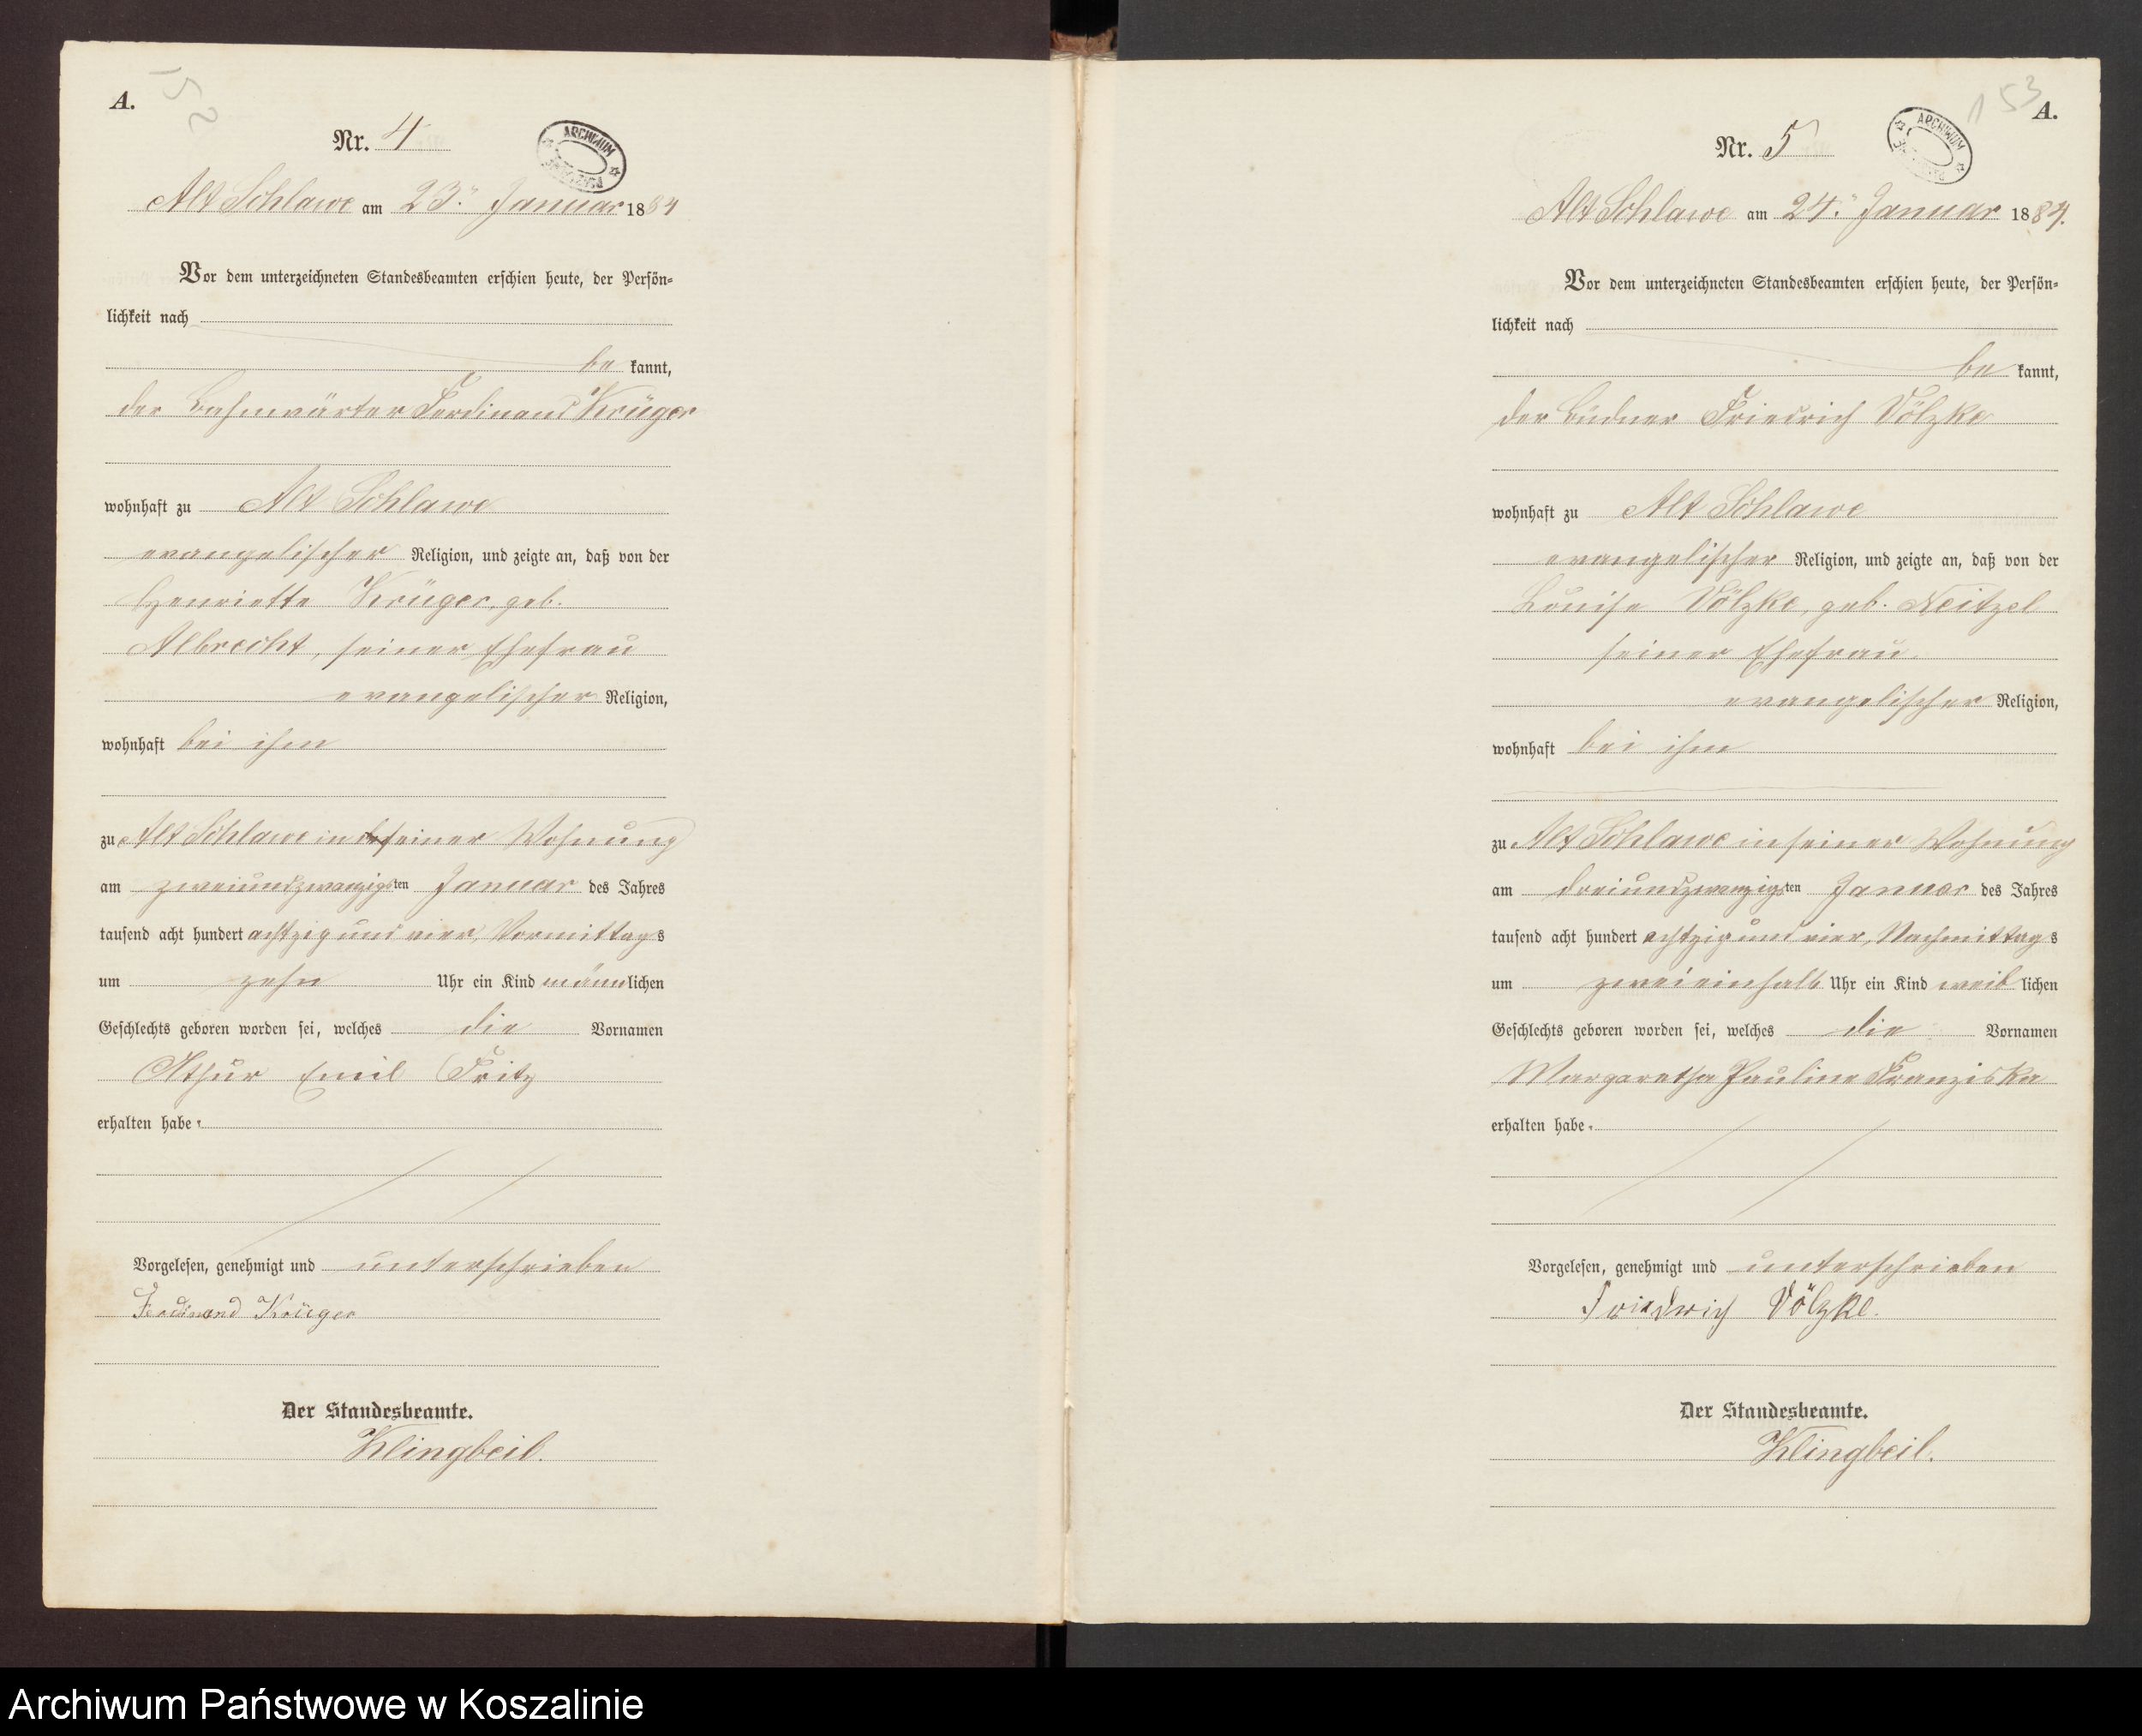 A.
152
Nr. 4
ARCHIWUM
Alt Schlawe am 23. Januar 1884
Vor dem unterzeichneten Standesbeamten erschien heute, der Persön-
lichkeit nach
be kannt,
der Bahnwärter Ferdinand Krüger
wohnhaft zu Alt Schlawe
evangelischer Religion, und zeigte an, daß von der
Henriette Krüger, geb.
Albrecht, seiner Ehefrau
evangelischer Religion,
wohnhaft bei ihm
zu Alt Schlawe in seiner Wohnung
am zweiundzwanzigsten Januar des Jahres
tausend acht hundert achtzig und vier, Vormittags
um zehn Uhr ein Kind männlichen
Geschlechts geboren worden sei, welches die Vornamen
Athur Emil Fritz
erhalten habe.
Vorgelesen, genehmigt und unterschrieben
Ferdinand Krüger
Der Standesbeamte.
Klingbeil.
153
A.
Nr. 5
ARCHIWUM
Alt Schlawe am 24. Januar 1884.
Vor dem unterzeichneten Standesbeamten erschien heute, der Persön-
lichkeit nach
be kannt,
der Büdner Friedrich Völzke
wohnhaft zu Alt Schlawe
evangelischer Religion, und zeigte an, daß von der
Louise Völzke, geb. Neitzel
seiner Ehefrau
evangelischer Religion,
wohnhaft bei ihm
zu Alt Schlawe in seiner Wohnung
am dreiundzwanzigsten Januar des Jahres
tausend acht hundert achtzig und vier, Nachmittags
um zweieinhalb Uhr ein Kind weiblichen
Geschlechts geboren worden sei, welches die Vornamen
Margaretha Pauline Franziska
erhalten habe.
Vorgelesen, genehmigt und unterschrieben
Friedrich Völzke.
Der Standesbeamte.
Klingbeil.
Archiwum Państwowe w Koszalinie